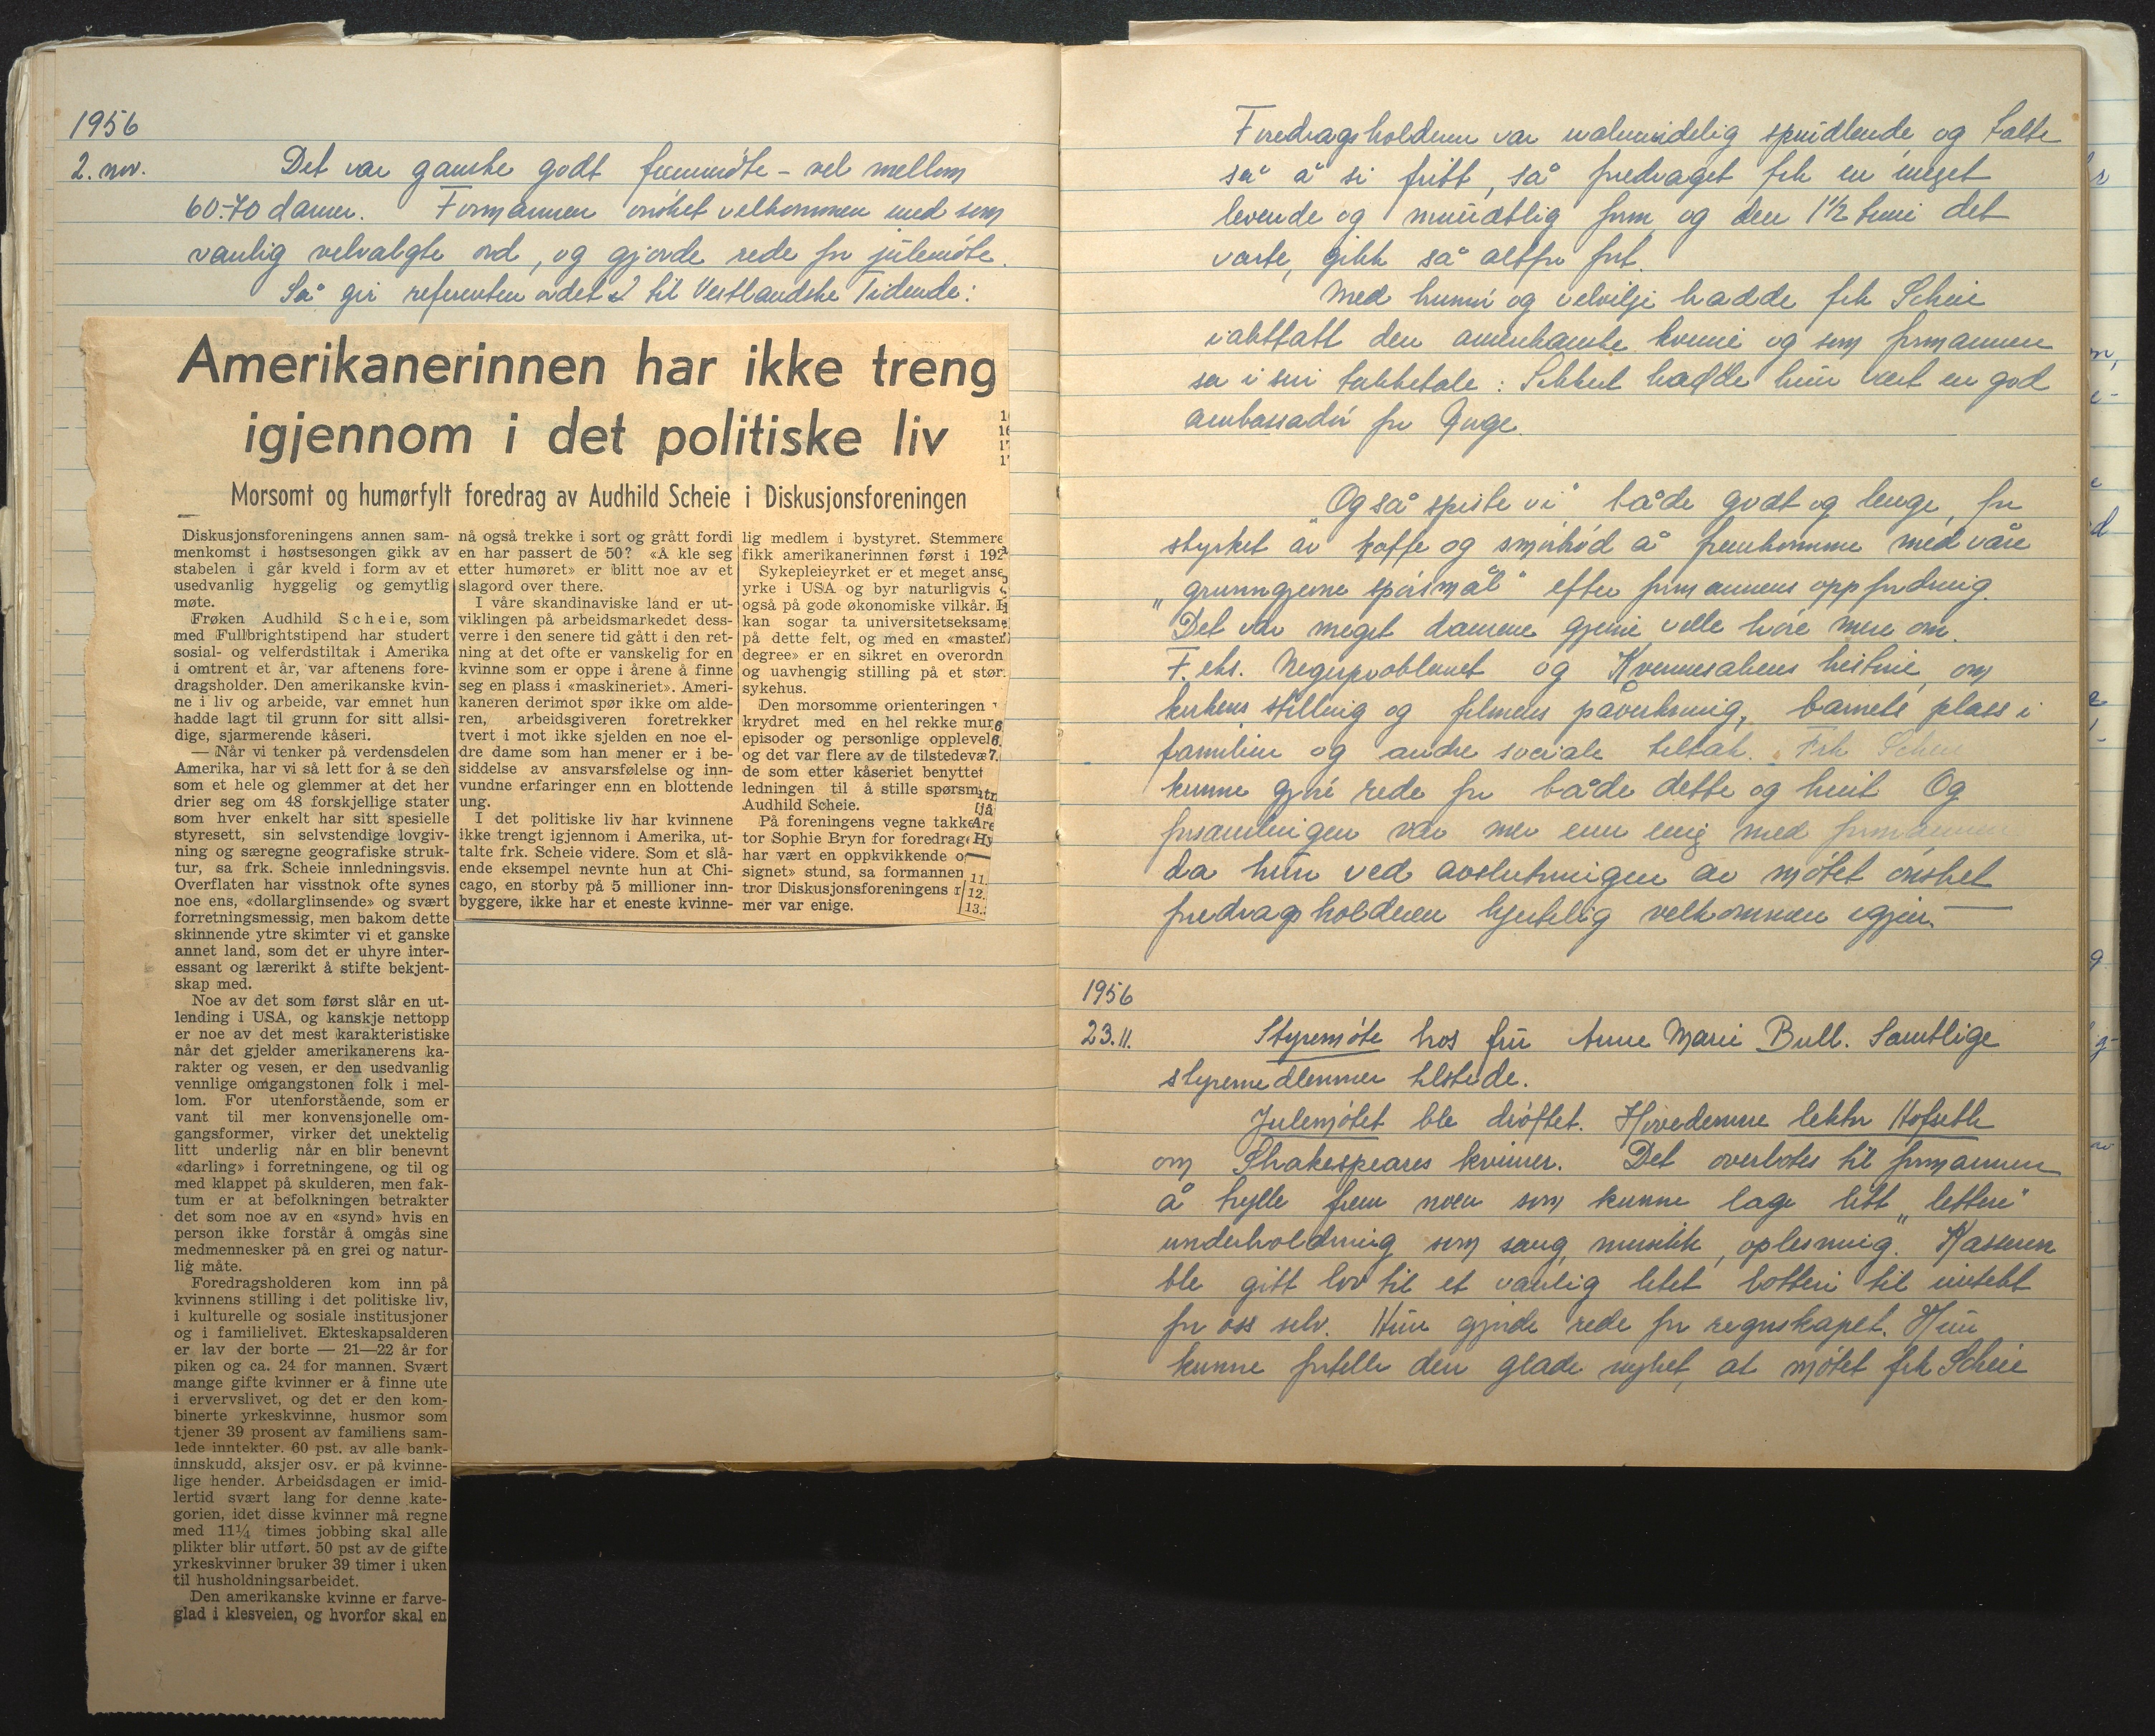 1956
2. nov. Det var ganske godt fremmøte - vel mellom
60-70 damer. Formannen ønsket velkommen med som
vanlig velvalgte ord, og gjorde rede for julemøte.
Så gir referenten ordet til Vestlandske Tidende:
Amerikanerinnen har ikke treng
igjennom i det politiske liv
Morsomt og humørfylt foredrag av Audhild Scheie i Diskusjonsforeningen
Diskusjonsforeningens annen sam-
menkomst i høstsesongen gikk av
stabelen i går kveld i form av et
usedvanlig hyggelig og gemytlig
møte.
Frøken Audhild Scheie, som
med Fullbrightstipend har studert
sosial- og velferdstiltak i Amerika
i omtrent et år, var aftenens fore-
dragsholder. Den amerikanske kvin-
ne i liv og arbeide, var emnet hun
hadde lagt til grunn for sitt allsi-
dige, sjarmerende kåseri.
— Når vi tenker på verdensdelen
Amerika, har vi så lett for å se den
som et hele og glemmer at det her
drier seg om 48 forskjellige stater
som hver enkelt har sitt spesielle
styresett, sin selvstendige lovgiv-
ning og særegne geografiske struk-
tur, sa frk. Scheie innledningsvis.
Overflaten har visstnok ofte synes
noe ens, «dollarglinsende» og svært
forretningsmessig, men bakom dette
skinnende ytre skimter vi et ganske
annet land, som det er uhyre inter-
essant og lærerikt å stifte bekjent-
skap med.
Noe av det som først slår en ut-
lending i USA, og kanskje nettopp
er noe av det mest karakteristiske
når det gjelder amerikanerens ka-
rakter og vesen, er den usedvanlig
vennlige omgangstonen folk i mel-
lom. For utenforstående, som er
vant til mer konvensjonelle om-
gangsformer, virker det unektelig
litt underlig når en blir benevnt
«darling» i forretningene, og til og
med klappet på skulderen, men fak-
tum er at befolkningen betrakter
det som noe av en «synd» hvis en
person ikke forstår å omgås sine
medmennesker på en grei og natur-
lig måte.
Foredragsholderen kom inn på
kvinnens stilling i det politiske liv,
i kulturelle og sosiale institusjoner
og i familielivet. Ekteskapsalderen
er lav der borte — 21—22 år for
piken og ca. 24 for mannen. Svært
mange gifte kvinner er å finne ute
i ervervslivet, og det er den kom-
binerte yrkeskvinne, husmor som
tjener 39 prosent av familiens sam-
lede inntekter. 60 pst. av alle bank-
innskudd, aksjer osv. er på kvinne-
lige hender. Arbeidsdagen er imid-
lertid svært lang for denne kate-
gorien, idet disse kvinner må regne
med 11¼ times jobbing skal alle
plikter blir utført. 50 pst av de gifte
yrkeskvinner bruker 39 timer i uken
til husholdningsarbeidet.
Den amerikanske kvinne er farve-
glad i klesveien, og hvorfor skal en
nå også trekke i sort og grått fordi
en har passert de 50? «Å kle seg
etter humøret» er blitt noe av et
slagord over there.
I våre skandinaviske land er ut-
viklingen på arbeidsmarkedet dess-
verre i den senere tid gått i den ret-
ning at det ofte er vanskelig for en
kvinne som er oppe i årene å finne
seg en plass i «maskineriet». Ameri-
kaneren derimot spør ikke om alde-
ren, arbeidsgiveren foretrekker
tvert i mot ikke sjelden en noe el-
dre dame som han mener er i be-
siddelse av ansvarsfølelse og inn-
vundne erfaringer enn en blottende
ung.
I det politiske liv har kvinnene
ikke trengt igjennom i Amerika, ut-
talte frk. Scheie videre. Som et slå-
ende eksempel nevnte hun at Chi-
cago, en storby på 5 millioner inn-
byggere, ikke har et eneste kvinne-
lig medlem i bystyret. Stemmere
fikk amerikanerinnen først i 192
Sykepleieyrket er et meget anse
yrke i USA og byr naturligvis
også på gode økonomiske vilkår.
kan sogar ta universitetseksame
på dette felt, og med en «master
degree» er en sikret en overordn
og uavhengig stilling på et stør
sykehus.
Den morsomme orienteringen
krydret med en hel rekke mur
episoder og personlige opplevel
og det var flere av de tilstedevæ
de som etter kåseriet benyttet
ledningen til å stille spørsm
Audhild Scheie.
På foreningens vegne takke
tor Sophie Bryn for foredrag
har vært en oppkvikkende o
signet» stund, sa formannen
tror Diskusjonsforeningens
mer var enige.
Foredragsholderen var ualmindelig sprudlende, og talte
så å si fritt, så foredraget fik en meget
levende og mundtlig form, og den 1½ time det
varte, gikk så altfor fort.
Med humør og velvilje hadde frk Scheie
iakttatt den amerikanske kvinne og som formannen
sa i sin takketale: Sikkert hadde hun vært en god
ambassadør for Norge.
"Og så spiste vi" både godt og lenge, for
styrket av kaffe og smørbrød å fremkomme med våre
„grunngjerne spørsmål" efter formannens oppfordring.
Det var meget damene gjerne ville høre mere om.
F. eks. Negerproblemet og Kvinnesakens historie, om
kirkens stilling og filmens påvirkning, barnets plass i
familien og andre sociale tiltak. Frk Scheie
kunne gjøre rede for både dette og hint. Og
forsamlingen var mer enn enig med formannen
da hun ved avslutningen av møtet ønsket
foredragsholderen hjertelig velkommen igjen. —
1956
23.11. Styremøte hos fru Anne Marie Bull. Samtlige
styremedlemmer tilstede.
Julemøtet ble drøftet. Hovedemne lektor Hofseth
om Shakespeares kvinner. Det overlotes til formannen
å trylle frem noen som kunne lage litt „lettere"
underholdning som sang, musikk, oplesning. Kasseren
ble gitt lov til et vanlig litet lotteri til inntekt
for oss selv. Hun gjorde rede for regnskapet. Hun
kunne fortelle den glade nyhet, at møtet frk Scheie